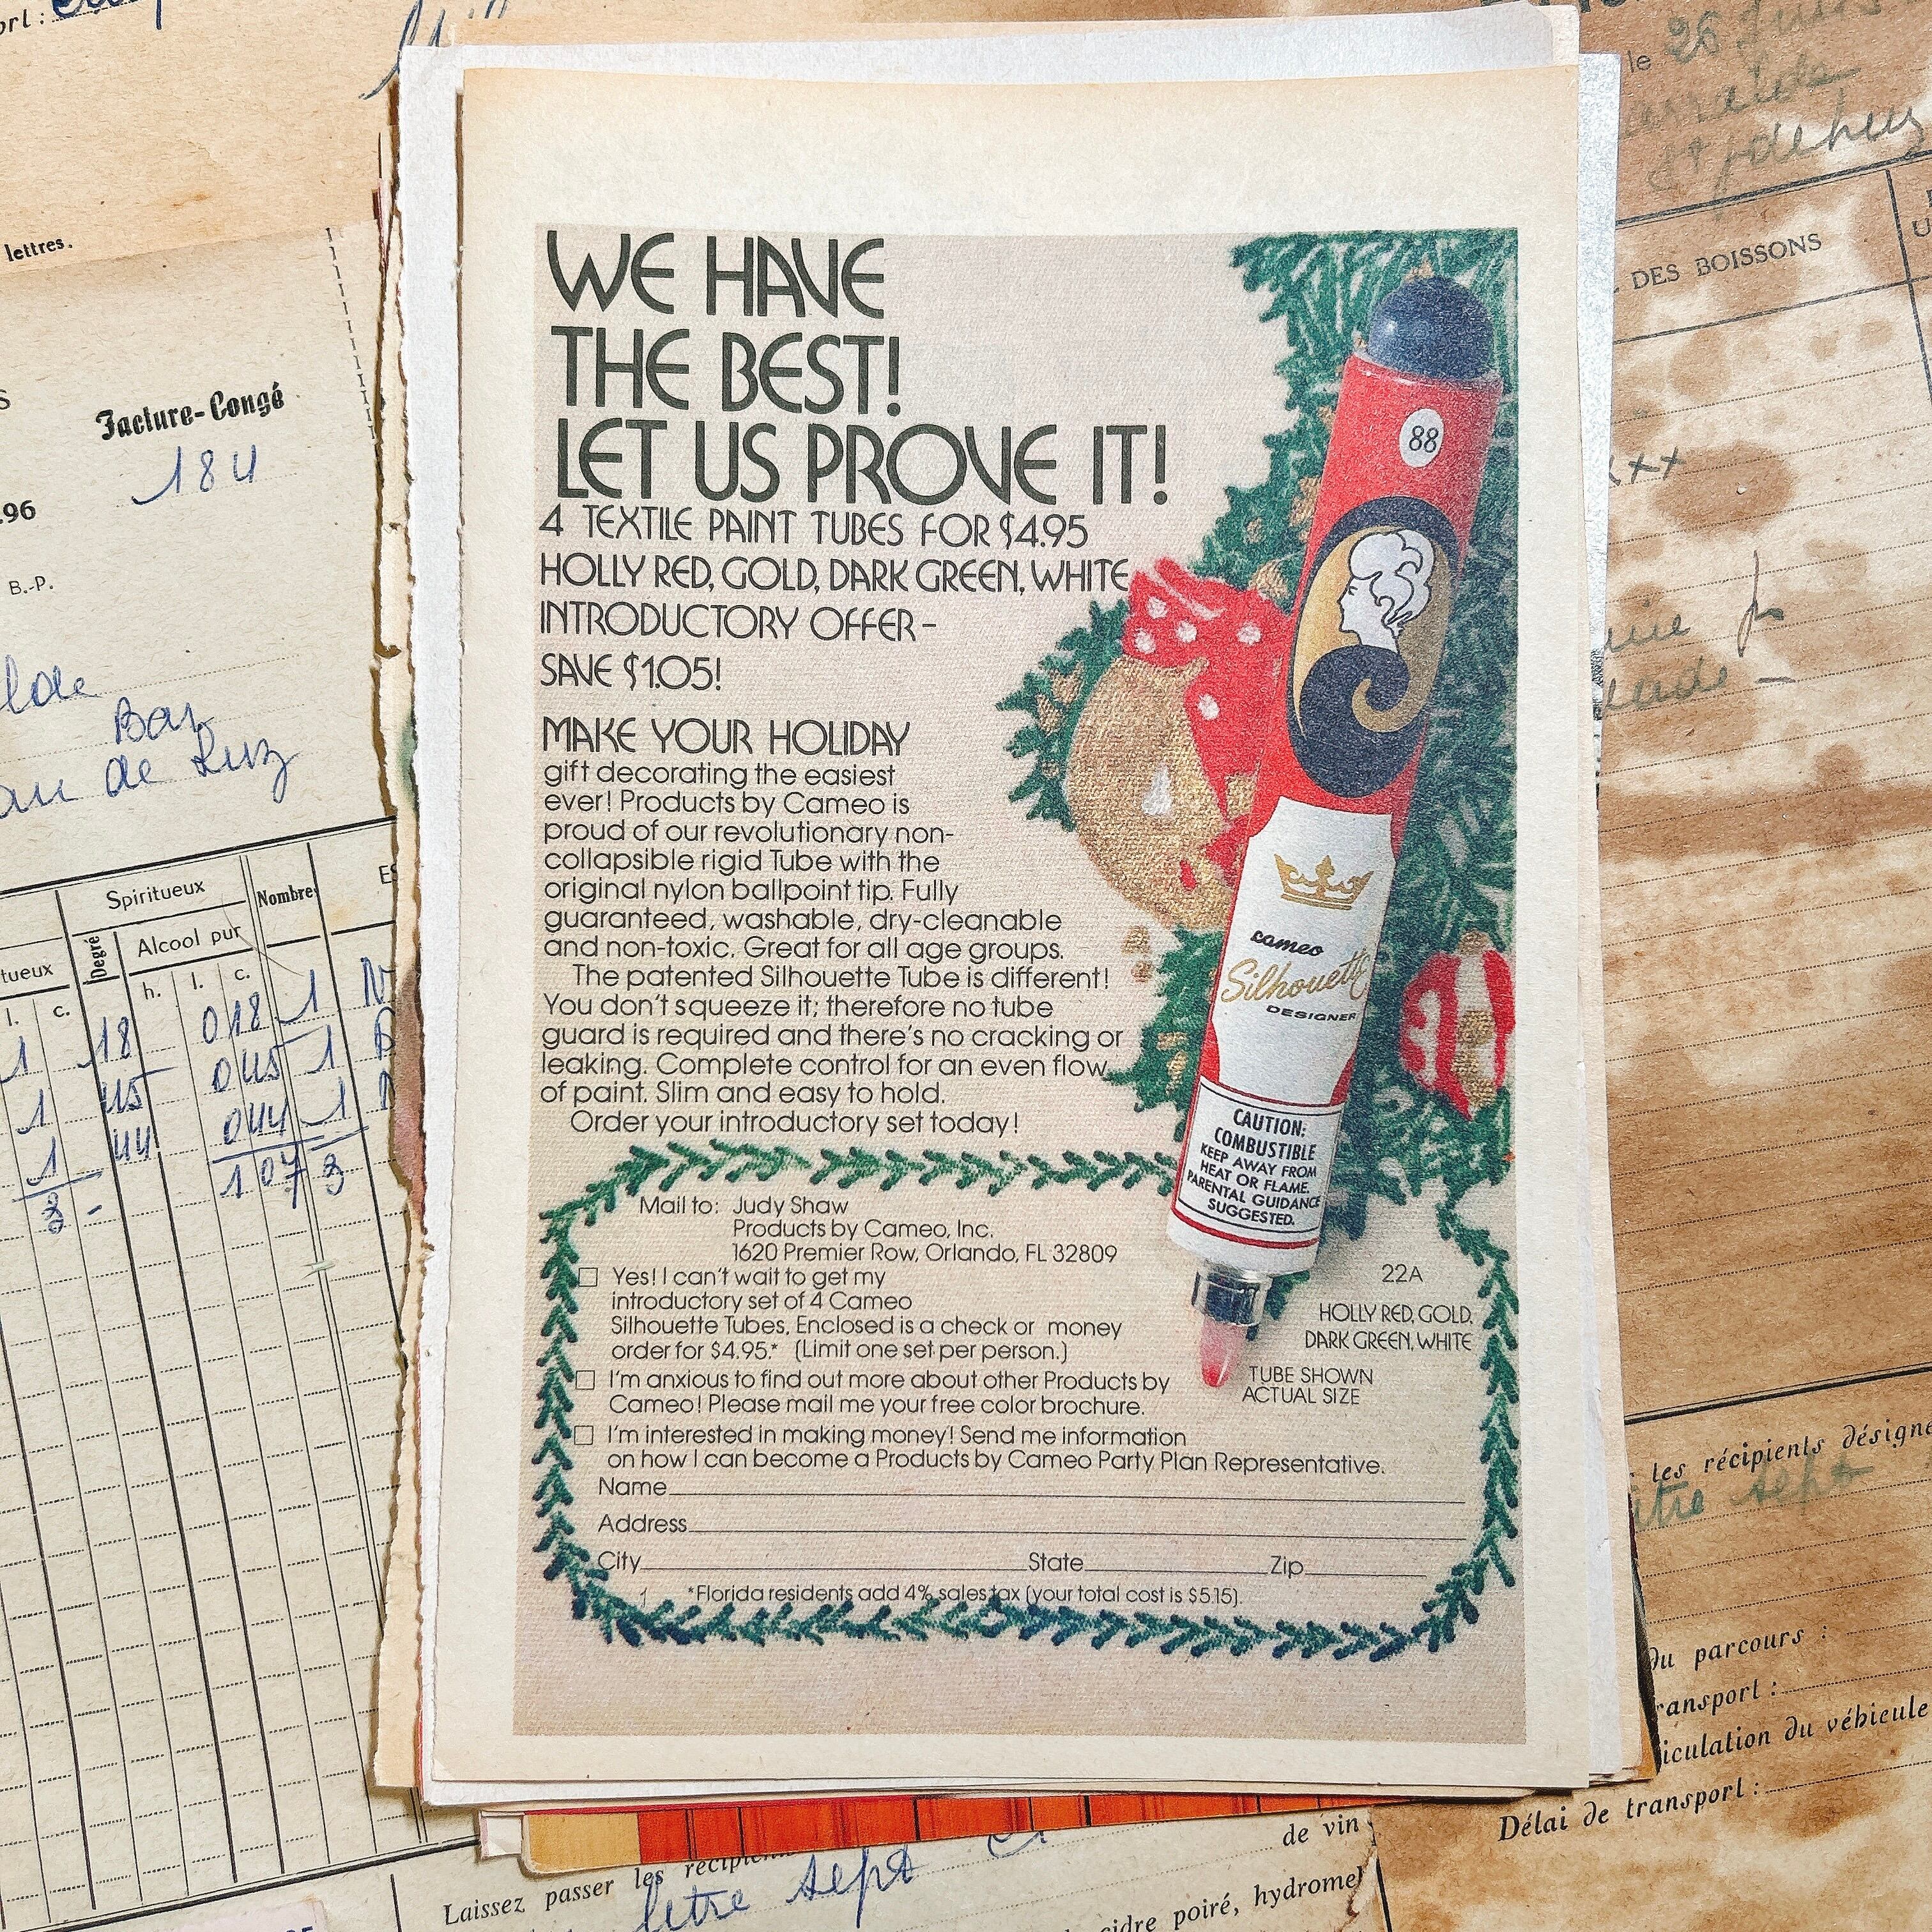 lettres.
Facture-Congé
184
.96
B.-P.
Bar
de Luz
Spiritueux
Nombre
Alcool pur
Degré
tueux
h. l. c.
l. c.
1 18 018 1
1 45 045 1
1 44 044 1
3 - 107 3
WE HAVE
THE BEST!
LET US PROVE IT!
4 TEXTILE PAINT TUBES FOR $4.95
HOLLY RED, GOLD, DARK GREEN, WHITE
INTRODUCTORY OFFER-
SAVE $1.05!
MAKE YOUR HOLIDAY
gift decorating the easiest
ever! Products by Cameo is
proud of our revolutionary non-
collapsible rigid Tube with the
original nylon ballpoint tip. Fully
guaranteed, washable, dry-cleanable
and non-toxic. Great for all age groups.
The patented Silhouette Tube is different!
You don't squeeze it; therefore no tube
guard is required and there's no cracking or
leaking. Complete control for an even flow
of paint. Slim and easy to hold.
Order your introductory set today!
88
cameo
Silhouette
DESIGNER
CAUTION:
COMBUSTIBLE
KEEP AWAY FROM
HEAT OR FLAME.
PARENTAL GUIDANCE
SUGGESTED.
Mail to: Judy Shaw
Products by Cameo, Inc.
1620 Premier Row, Orlando, FL 32809
Yes! I can't wait to get my
introductory set of 4 Cameo
Silhouette Tubes. Enclosed is a check or money
order for $4.95.* (Limit one set per person.)
I'm anxious to find out more about other Products by
Cameo! Please mail me your free color brochure.
I'm interested in making money! Send me information
on how I can become a Products by Cameo Party Plan Representative.
22A
HOLLY RED, GOLD,
DARK GREEN, WHITE
TUBE SHOWN
ACTUAL SIZE
Name
Address
City State Zip
*Florida residents add 4% sales tax (your total cost is $5.15).
le 26
DES BOISSONS
les récipients désigné
sept
du parcours :
transport :
iculation du véhicule
Délai de transport :
de vin
Laissez passer les
litre sept
cidre poiré, hydromel